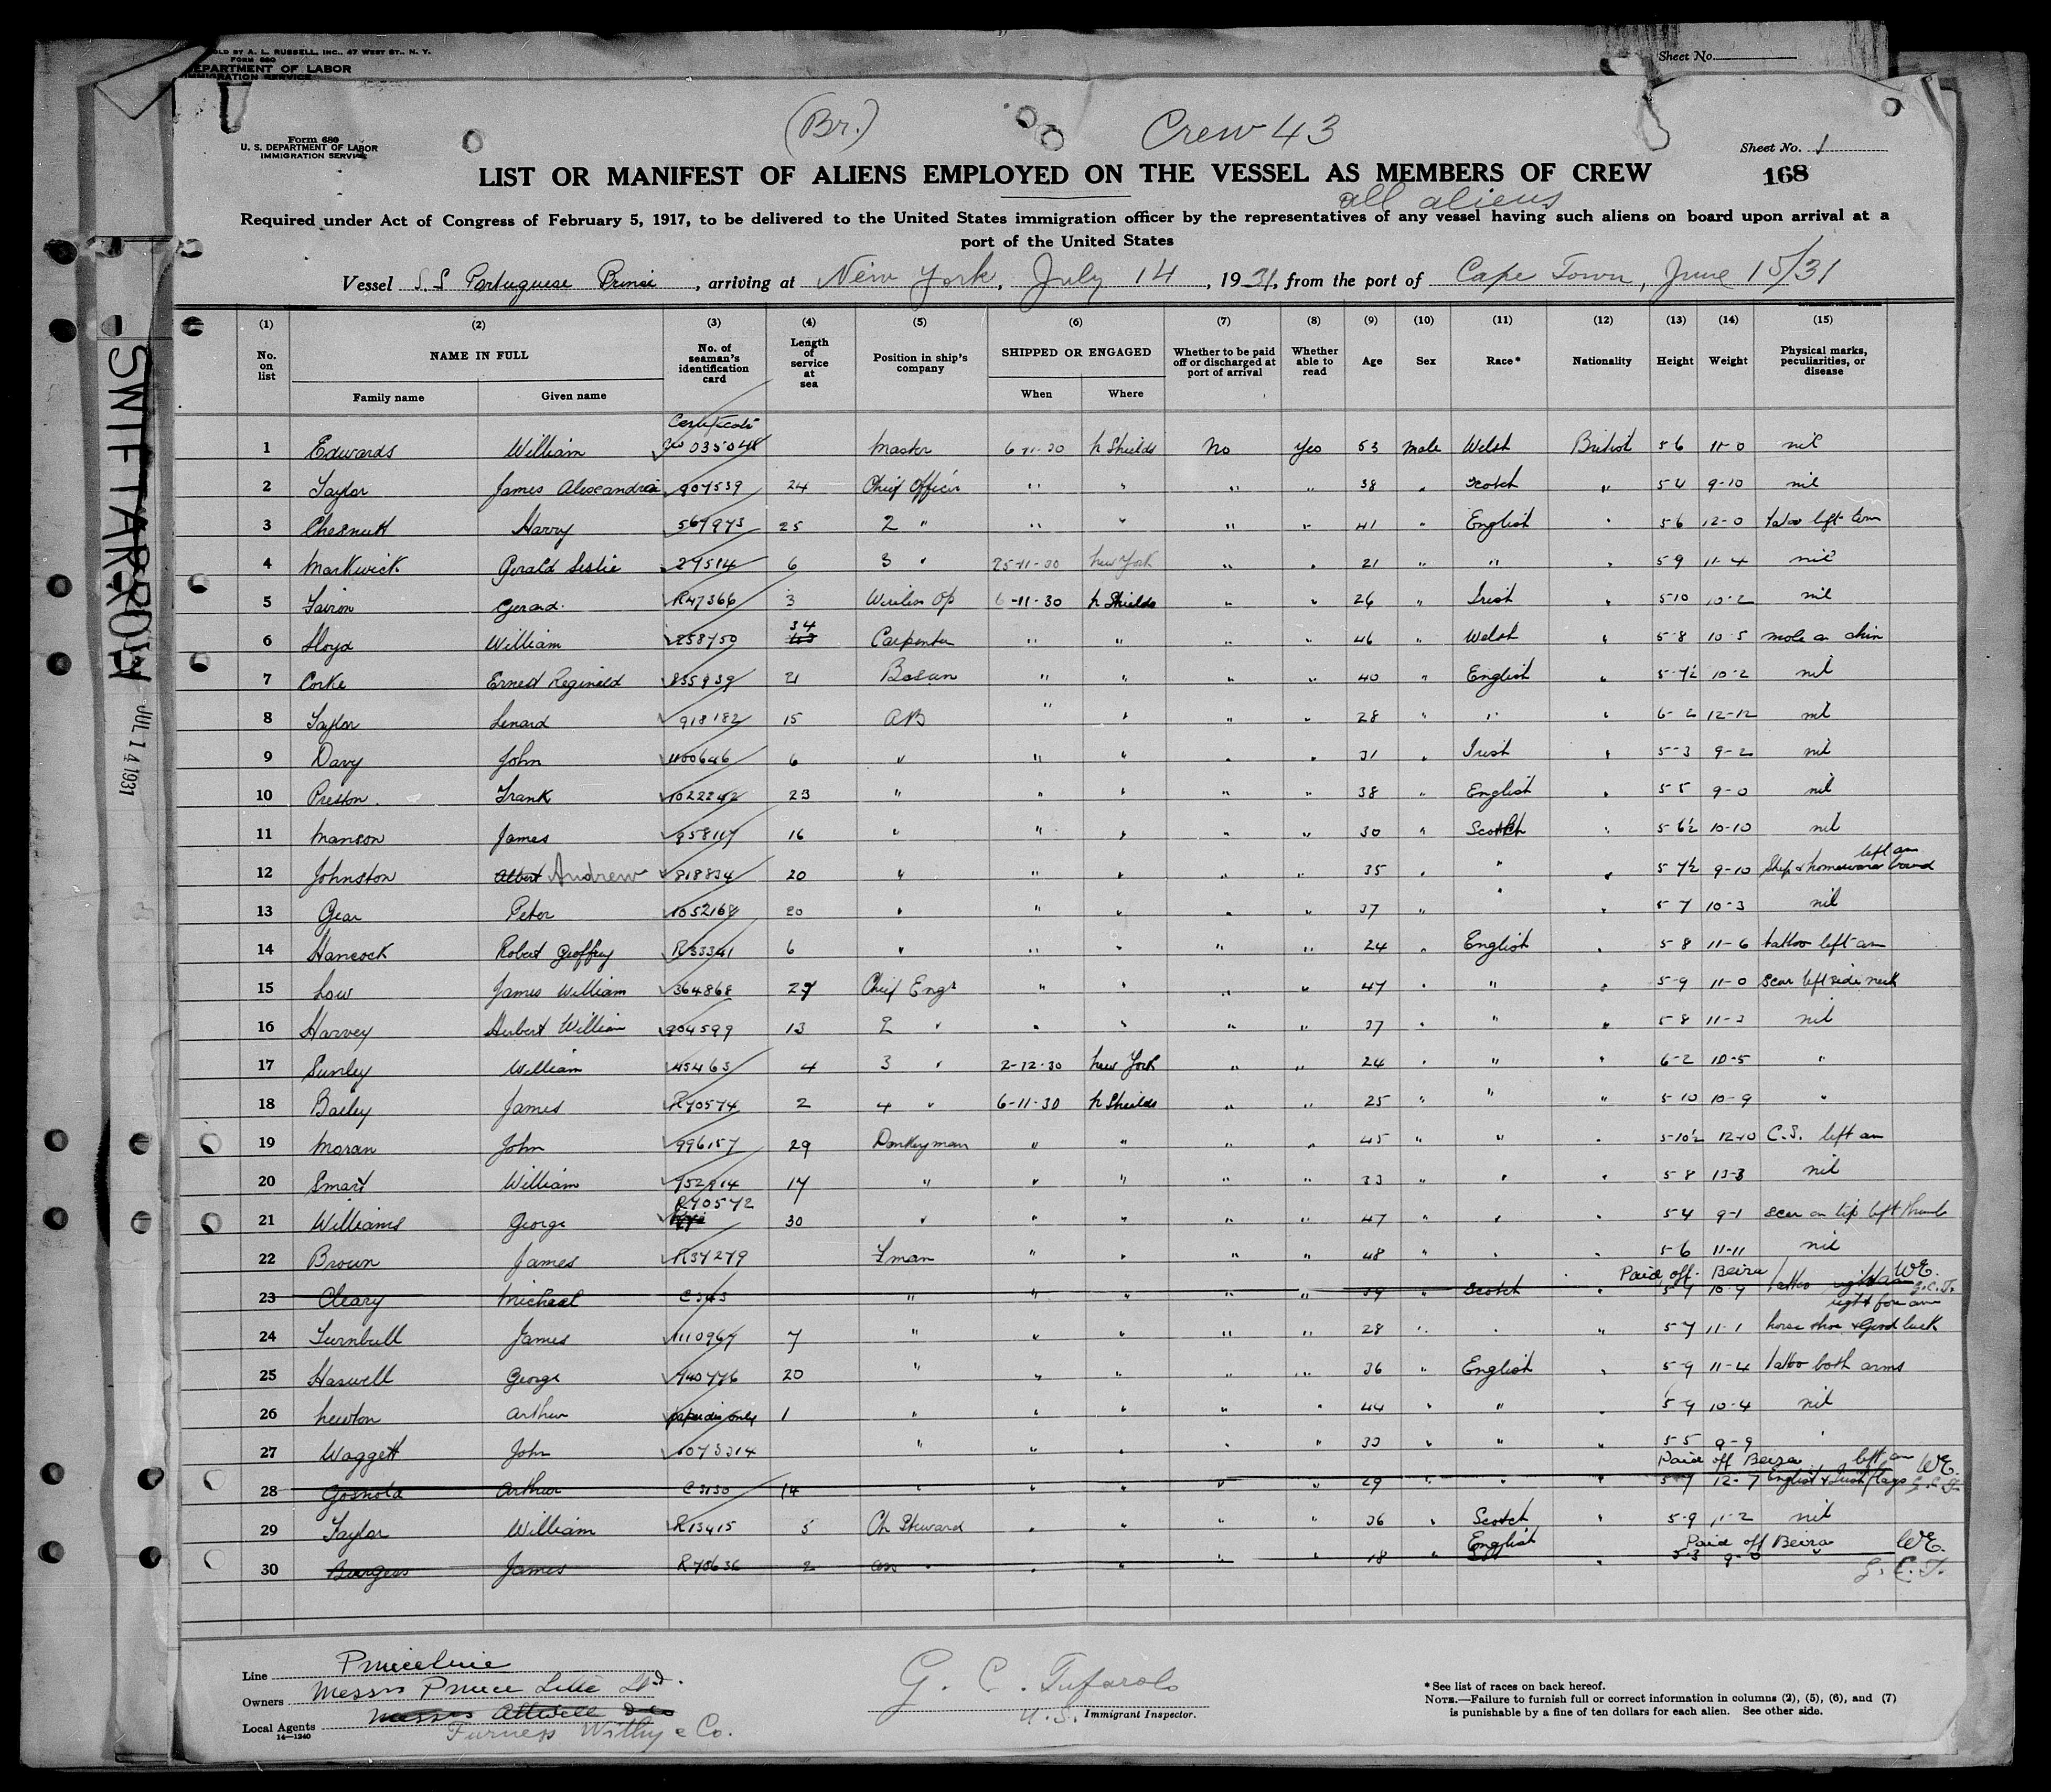 SOLD BY A. L. RUSSELL, INC., 47 WEST ST., N. Y.
FORM 680
DEPARTMENT OF LABOR
IMMIGRATION SERVICE
Sheet No.
(Br.) Crew 43
Form 680
U. S. DEPARTMENT OF LABOR
IMMIGRATION SERVICE
Sheet No. 1
LIST OR MANIFEST OF ALIENS EMPLOYED ON THE VESSEL AS MEMBERS OF CREW
168
all aliens
Required under Act of Congress of February 5, 1917, to be delivered to the United States immigration officer by the representatives of any vessel having such aliens on board upon arrival at a
port of the United States
Vessel S.S Portuguese Prince, arriving at New York, July 14, 1931, from the port of Cape Town, June 15/31
(1) (2) (3) (4) (5) (6) (7) (8) (9) (10) (11) (12) (13) (14) (15)
No. on list NAME IN FULL No. of seaman's identification card Length of service at sea Position in ship's company SHIPPED OR ENGAGED Whether to be paid off or discharged at port of arrival Whether able to read Age Sex Race* Nationality Height Weight Physical marks, peculiarities, or disease
Family name Given name When Where
Certificate
1 Edwards William 035048 Master 6-11-30 N Shields No Yes 53 Male Welsh British 5 6 11-0 nil
2 Taylor James Alexander 907539 24 Chief Officer " " " " 38 " Scotch " 5 4 9-10 nil
3 Chesnutt Harry 567973 25 2 " " " " " 41 " English " 5 6 12-0 left
4 Markwick Gerald Leslie 27514 6 3 " 25-11-30 New York " " 21 " " " 5 9 11-4 nil
5 Gerard R47366 3 Wireless Op 6-11-30 N Shields " " 26 " Irish " 5-10 10-2 nil
6 Lloyd William 258750 34 Carpenter " " " " 46 " Welsh " 5-8 10-5 mole on chin
7 Corke Ernest Reginald 835939 21 Bosun " " " " 40 " English " 5-7½ 10-2 nil
8 Taylor Lenard 918182 15 AB " " " " 28 " " " 6-2 12-12 nil
9 Davy John 1100646 6 " " " " " 31 " Irish " 5-3 9-2 nil
10 Preston Frank 1022242 23 " " " " " 38 " English " 5 5 9-0 nil
11 Manson James 958117 16 " " " " " 30 " Scotch " 5 6½ 10-10 nil
left arm
12 Johnston Albert Andrew 818834 20 " " " " " 35 " " " 5 7½ 9-10 Ship & homeward bound
13 Gear Peter 1052168 20 " " " " " 37 " " " 5 7 10-3 nil
14 Hancock Robert Geoffrey R33341 6 " " " " " 24 " English " 5 8 11-6 tattoo left arm
15 Low James William 364868 27 Chief Engr " " " " 47 " " " 5-9 11-0 Scar left side neck
16 Harvey Herbert William 904599 13 2 " " " " " 37 " " " 5 8 11-3 nil
17 Sunley William 45463 4 3 " 2-12-30 New York " " 24 " " " 6-2 10-5 "
18 Bailey James R70574 2 4 " 6-11-30 N Shields " " 25 " " " 5-10 10-9 "
19 Moran John 996157 29 Donkeyman " " " " 45 " " " 5-10½ 12-10 C.S. left arm
20 Smart William 952914 17 " " " " " 33 " " " 5 8 13-3 nil
21 Williams George R70572 30 " " " " " 47 " " " 5 4 9-1 Scar on tip left thumb
22 Brown James R37279 Fman " " " " 48 " " " 5-6 11-11 nil
Paid off Beira W.E.
23 Cleary Michael C343 " " " " " 39 " Scotch " 5 9 10-9 tattoo right arm G.C.T.
right fore arm
24 Turnbull James 1110967 7 " " " " " 28 " " " 5-7 11-1 horse shoe & Good luck
25 Haswell George 740776 20 " " " " " 36 " English " 5-9 11-4 tattoo both arms
26 Newton Arthur 1 " " " " " 44 " " " 5-9 10-4 nil
27 Waggett John 1073314 " " " " " 33 " " " 5 5 9-9 "
Paid off Beira left arm W.E.
28 Gosnold Arthur C3130 14 " " " " " 29 " " " 5-7 12-7 English & Irish flags G.C.T.
29 Taylor William R13415 5 Ch Steward " " " " 36 " Scotch " 5-9 11-2 nil
English Paid off Beira W.E.
30 Burgess James R70636 2 Ass " " " " " 18 " " 5-3 9-0 G.C.T.
Line Princeline
Owners Messrs Prince Line Ltd.
Messrs Attwell
Local Agents Furness Withy & Co.
14—1240
G. C. Tufarolo
U.S. Immigrant Inspector.
* See list of races on back hereof.
NOTE.—Failure to furnish full or correct information in columns (2), (5), (6), and (7)
is punishable by a fine of ten dollars for each alien. See other side.
SWIFTARROW
JUL 14 1931